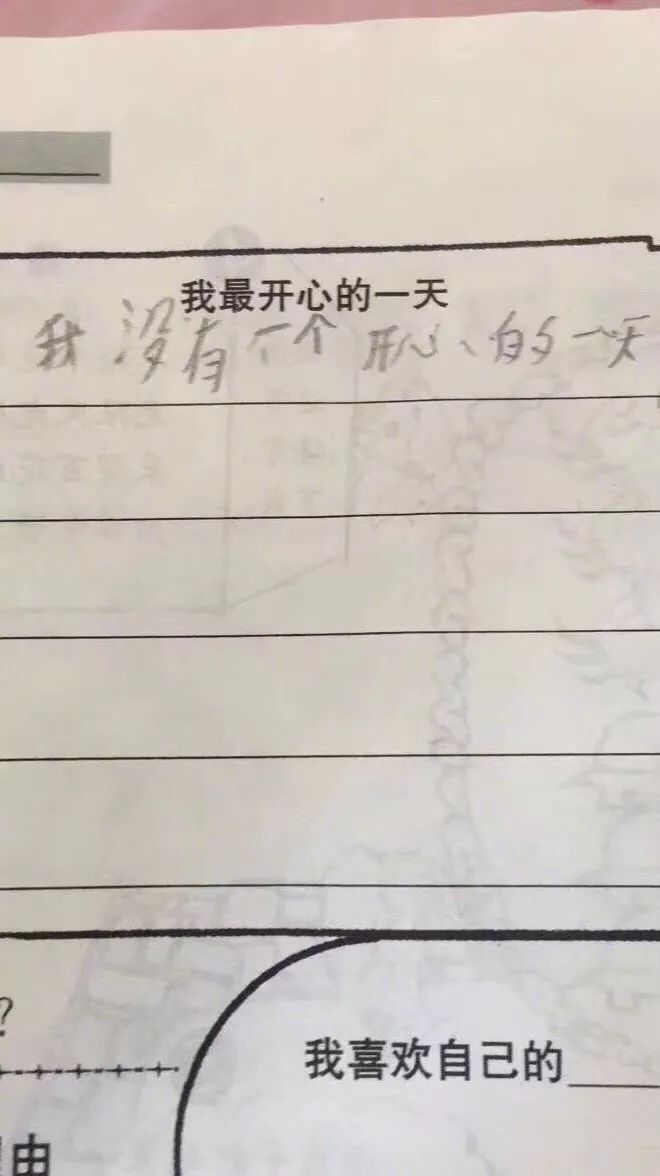 我最开心的一天
我没有一个开心的一天
?
我喜欢自己的
由